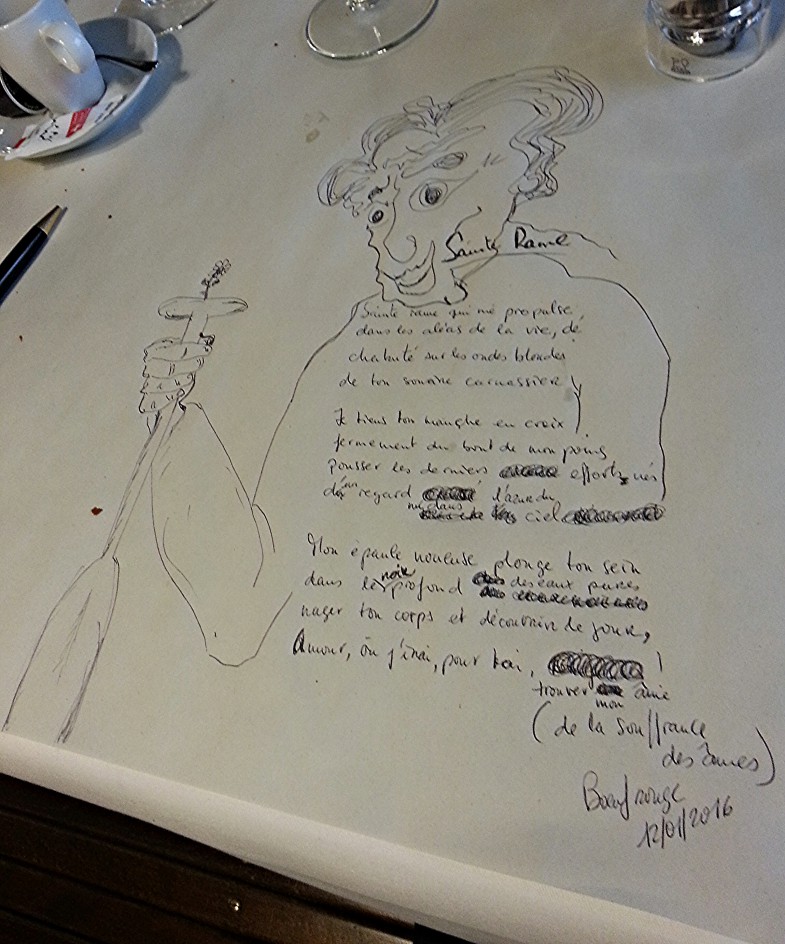 Sainte Rame
Sainte rame qui me propulse,
dans les aléas de la vie, de
chahuté sur les ondes blondes
de ton sourire carnassier
Je tiens ton manche en croix
fermement du bout de mon poing
pousser les derniers efforts nés
d'un regard l'azur du
né dans ciel
Mon épaule noueuse plonge ton sein
dans le noir profond des eaux pures
nager ton corps et découvrir le jour,
Amour, où j'irai, pour toi, !
trouver mon âme
(de la souffrance
des âmes)
Boeuf rouge
12/01/2016